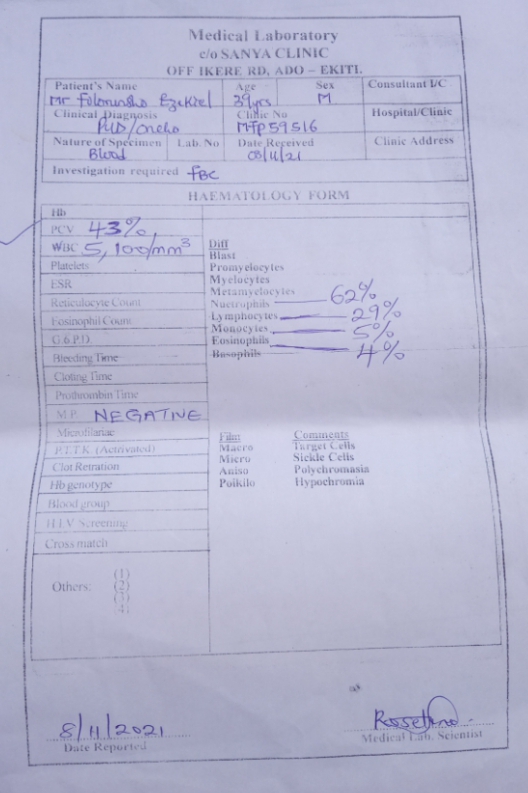 Medical Laboratory
c/o SANYA CLINIC
OFF IKERE RD, ADO – EKITI.
Patient's Name Age Sex Consultant I/C
Mr Ezekiel 39yrs M
Clinical Diagnosis Clinic No Hospital/Clinic
MFP59516
Nature of Specimen Lab. No Date Received Clinic Address
Blood 08/11/21
Investigation required FBC
HAEMATOLOGY FORM
Hb
PCV 43%
WBC 5,100/mm³
Platelets
ESR
Reticulocyte Count
Eosinophil Count
G.6.P.D.
Bleeding Time
Cloting Time
Prothrombin Time
M.P. NEGATIVE
Microfilariae
P.T.T.K (Actrivated)
Clot Retration
Hb genotype
Blood group
H.I.V Screening
Cross match
Others: (1)
(2)
(3)
(4)
Diff
Blast
Promyelocytes
Myelocytes
Metamyelocytes
Nuctrophils 62%
Lymphocytes 29%
Monocytes 5%
Eosinophils 4%
Basophils
Film Comments
Macro Target Cells
Micro Sickle Cells
Aniso Polychromasia
Poikilo Hypochromia
8/11/2021
Date Reported
Medical Lab. Scientist